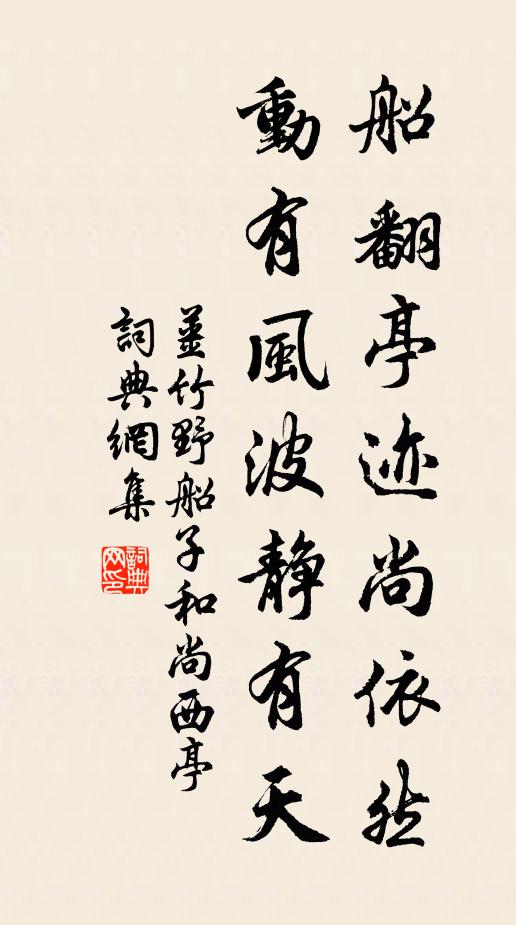 船翻亭迹尚依然
動有風波静有天
薑竹野船子和尚西亭
詞典網集
詞典网印